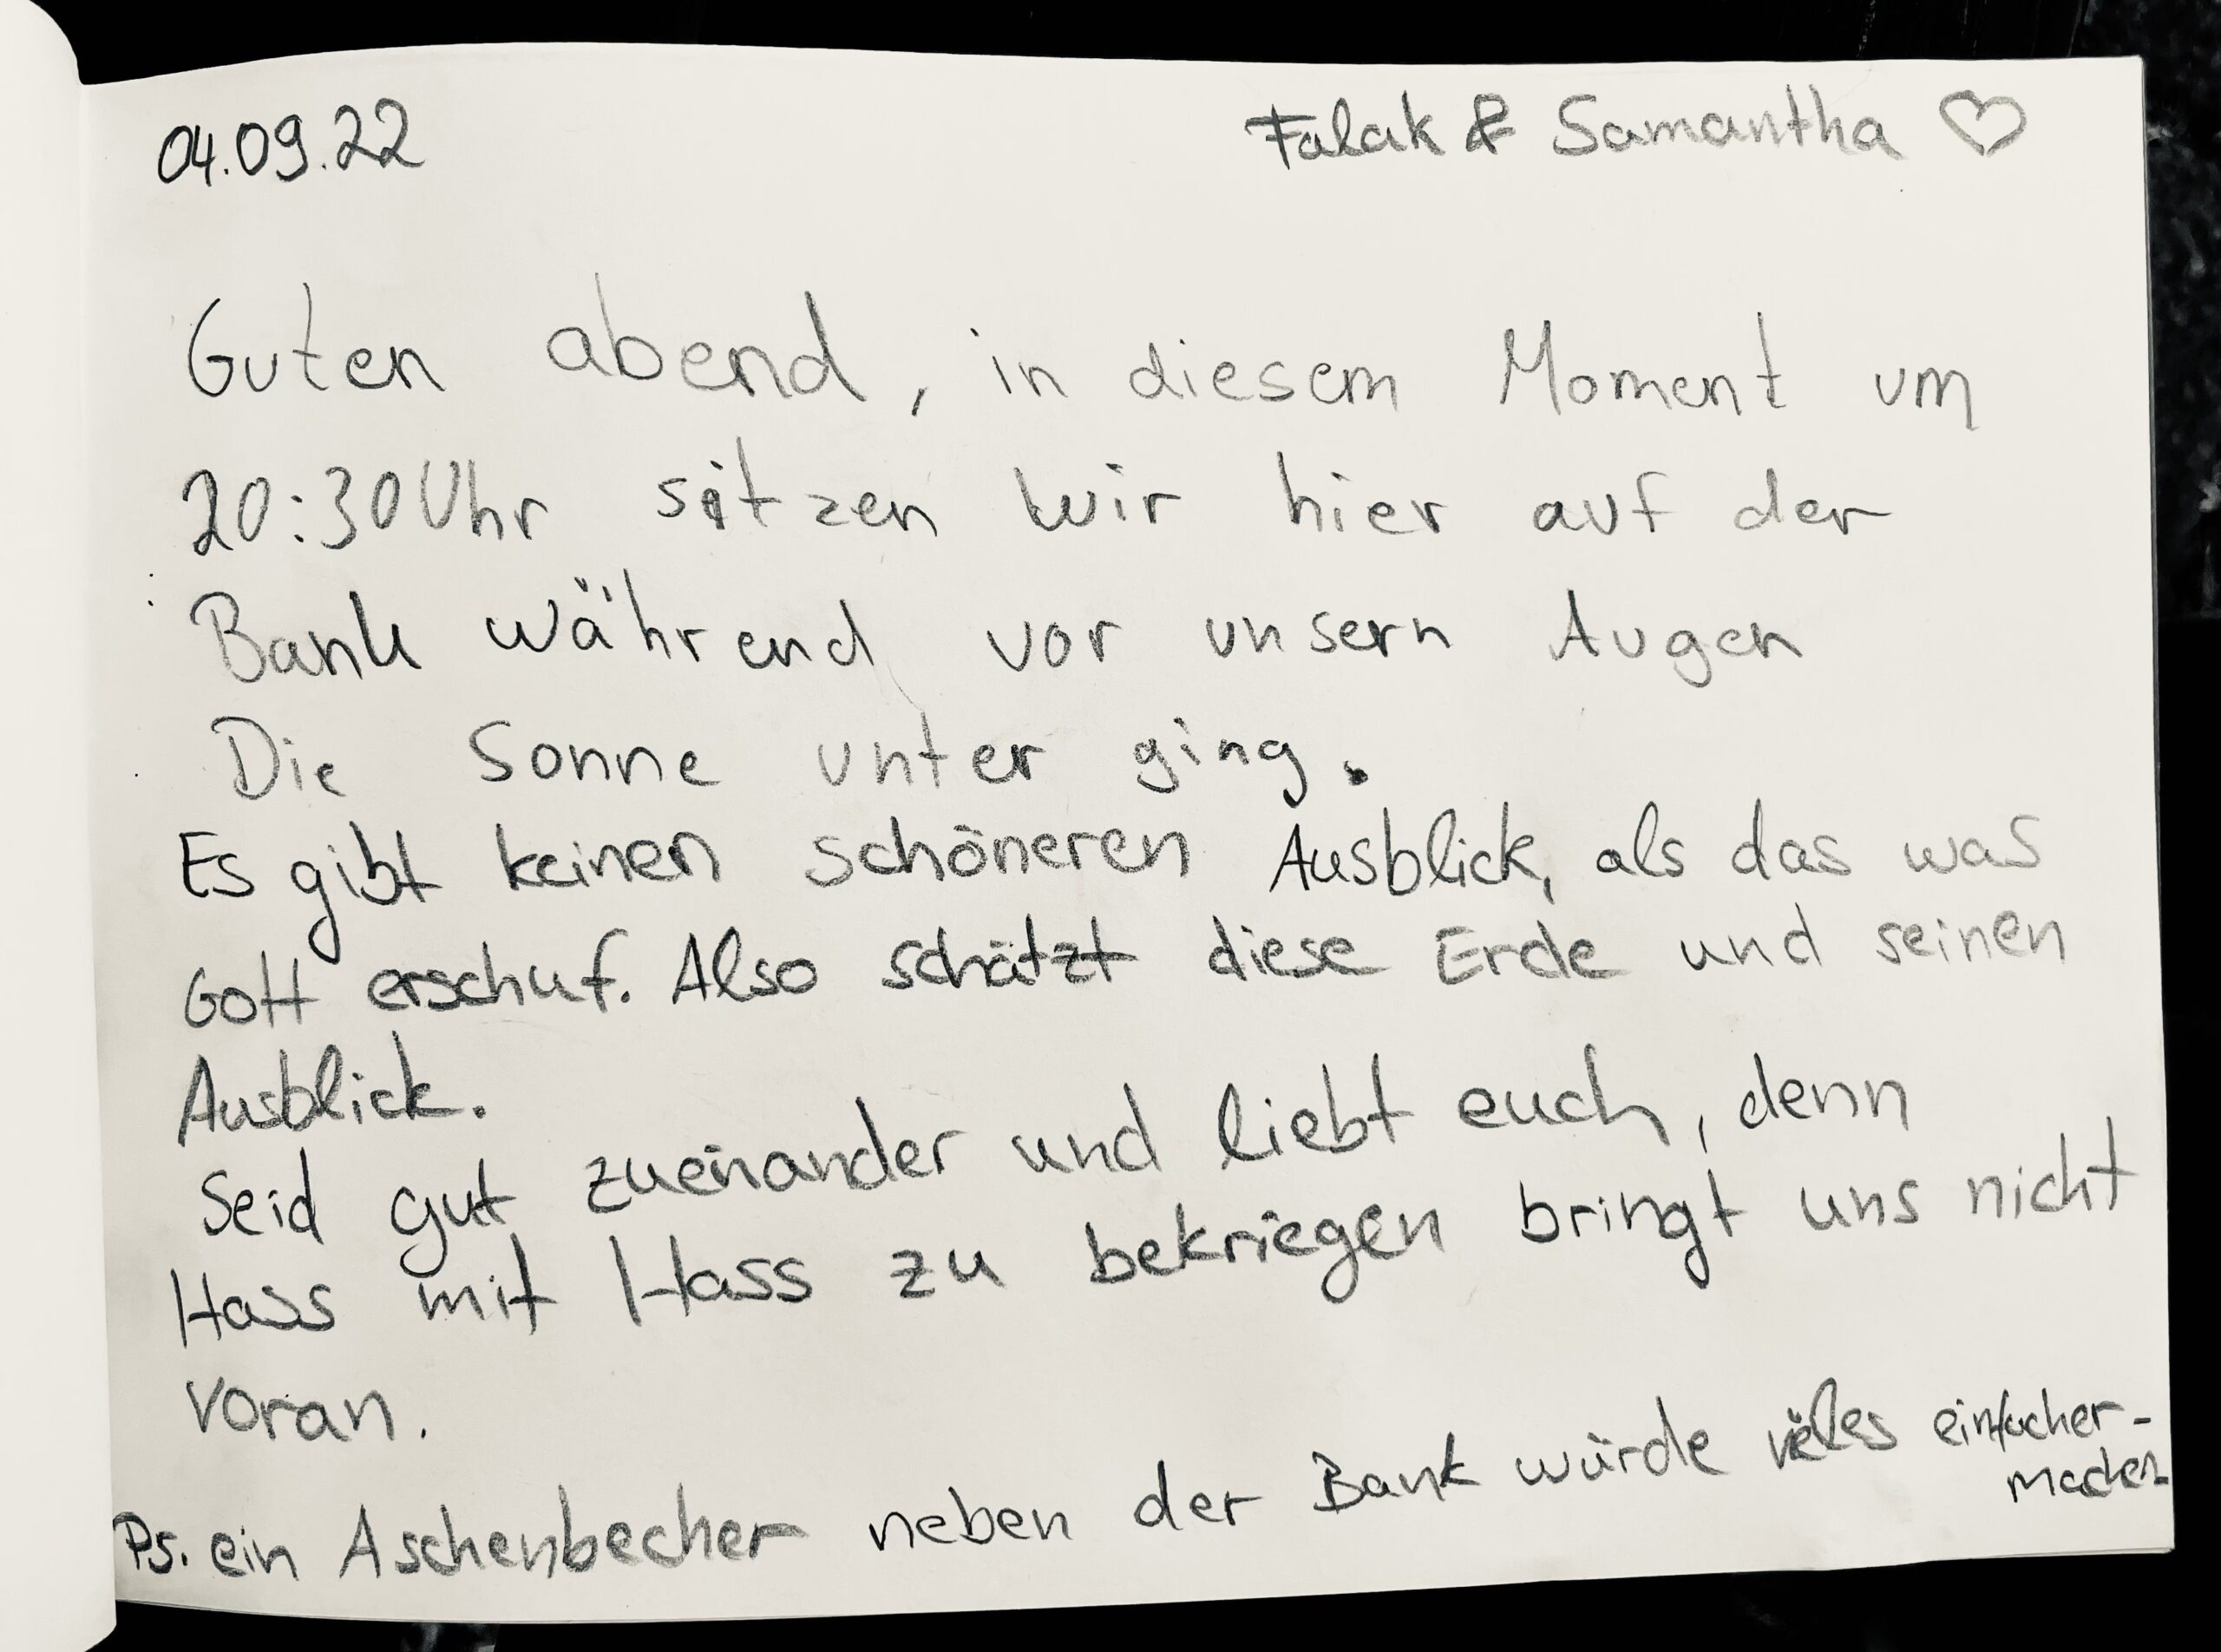 04.09.22 Falak & Samantha ♡
Guten abend, in diesem Moment um
20:30 Uhr sitzen wir hier auf der
Bank während vor unsern Augen
Die Sonne unter ging.
Es gibt keinen schöneren Ausblick, als das was
Gott erschuf. Also schätzt diese Erde und seinen
Ausblick.
Seid gut zueinander und liebt euch, denn
Hass mit Hass zu bekriegen bringt uns nicht
voran.
Ps. ein Aschenbecher neben der Bank würde vieles einfacher-
machen